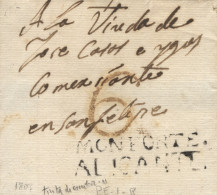 A la Viuda de
Jose Casos e yjos
Comerciante
en sanfelipe
6
MONFORTE.
ALICANTE.
1805
tinta de escribir
P.E.-1-R